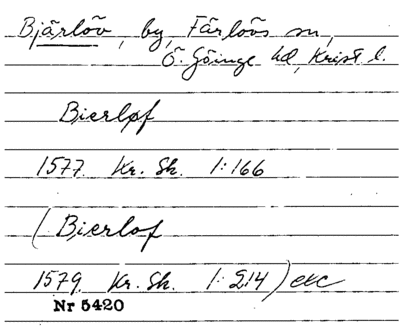 Bjärlöv, by, Färlövs sn,
Ö. Göinge hd, Krist l.
Bierløf
1577. Kr. Sk. 1:166
(Bierlof
1579. Kr. Sk. 1:214) etc
Nr 5420